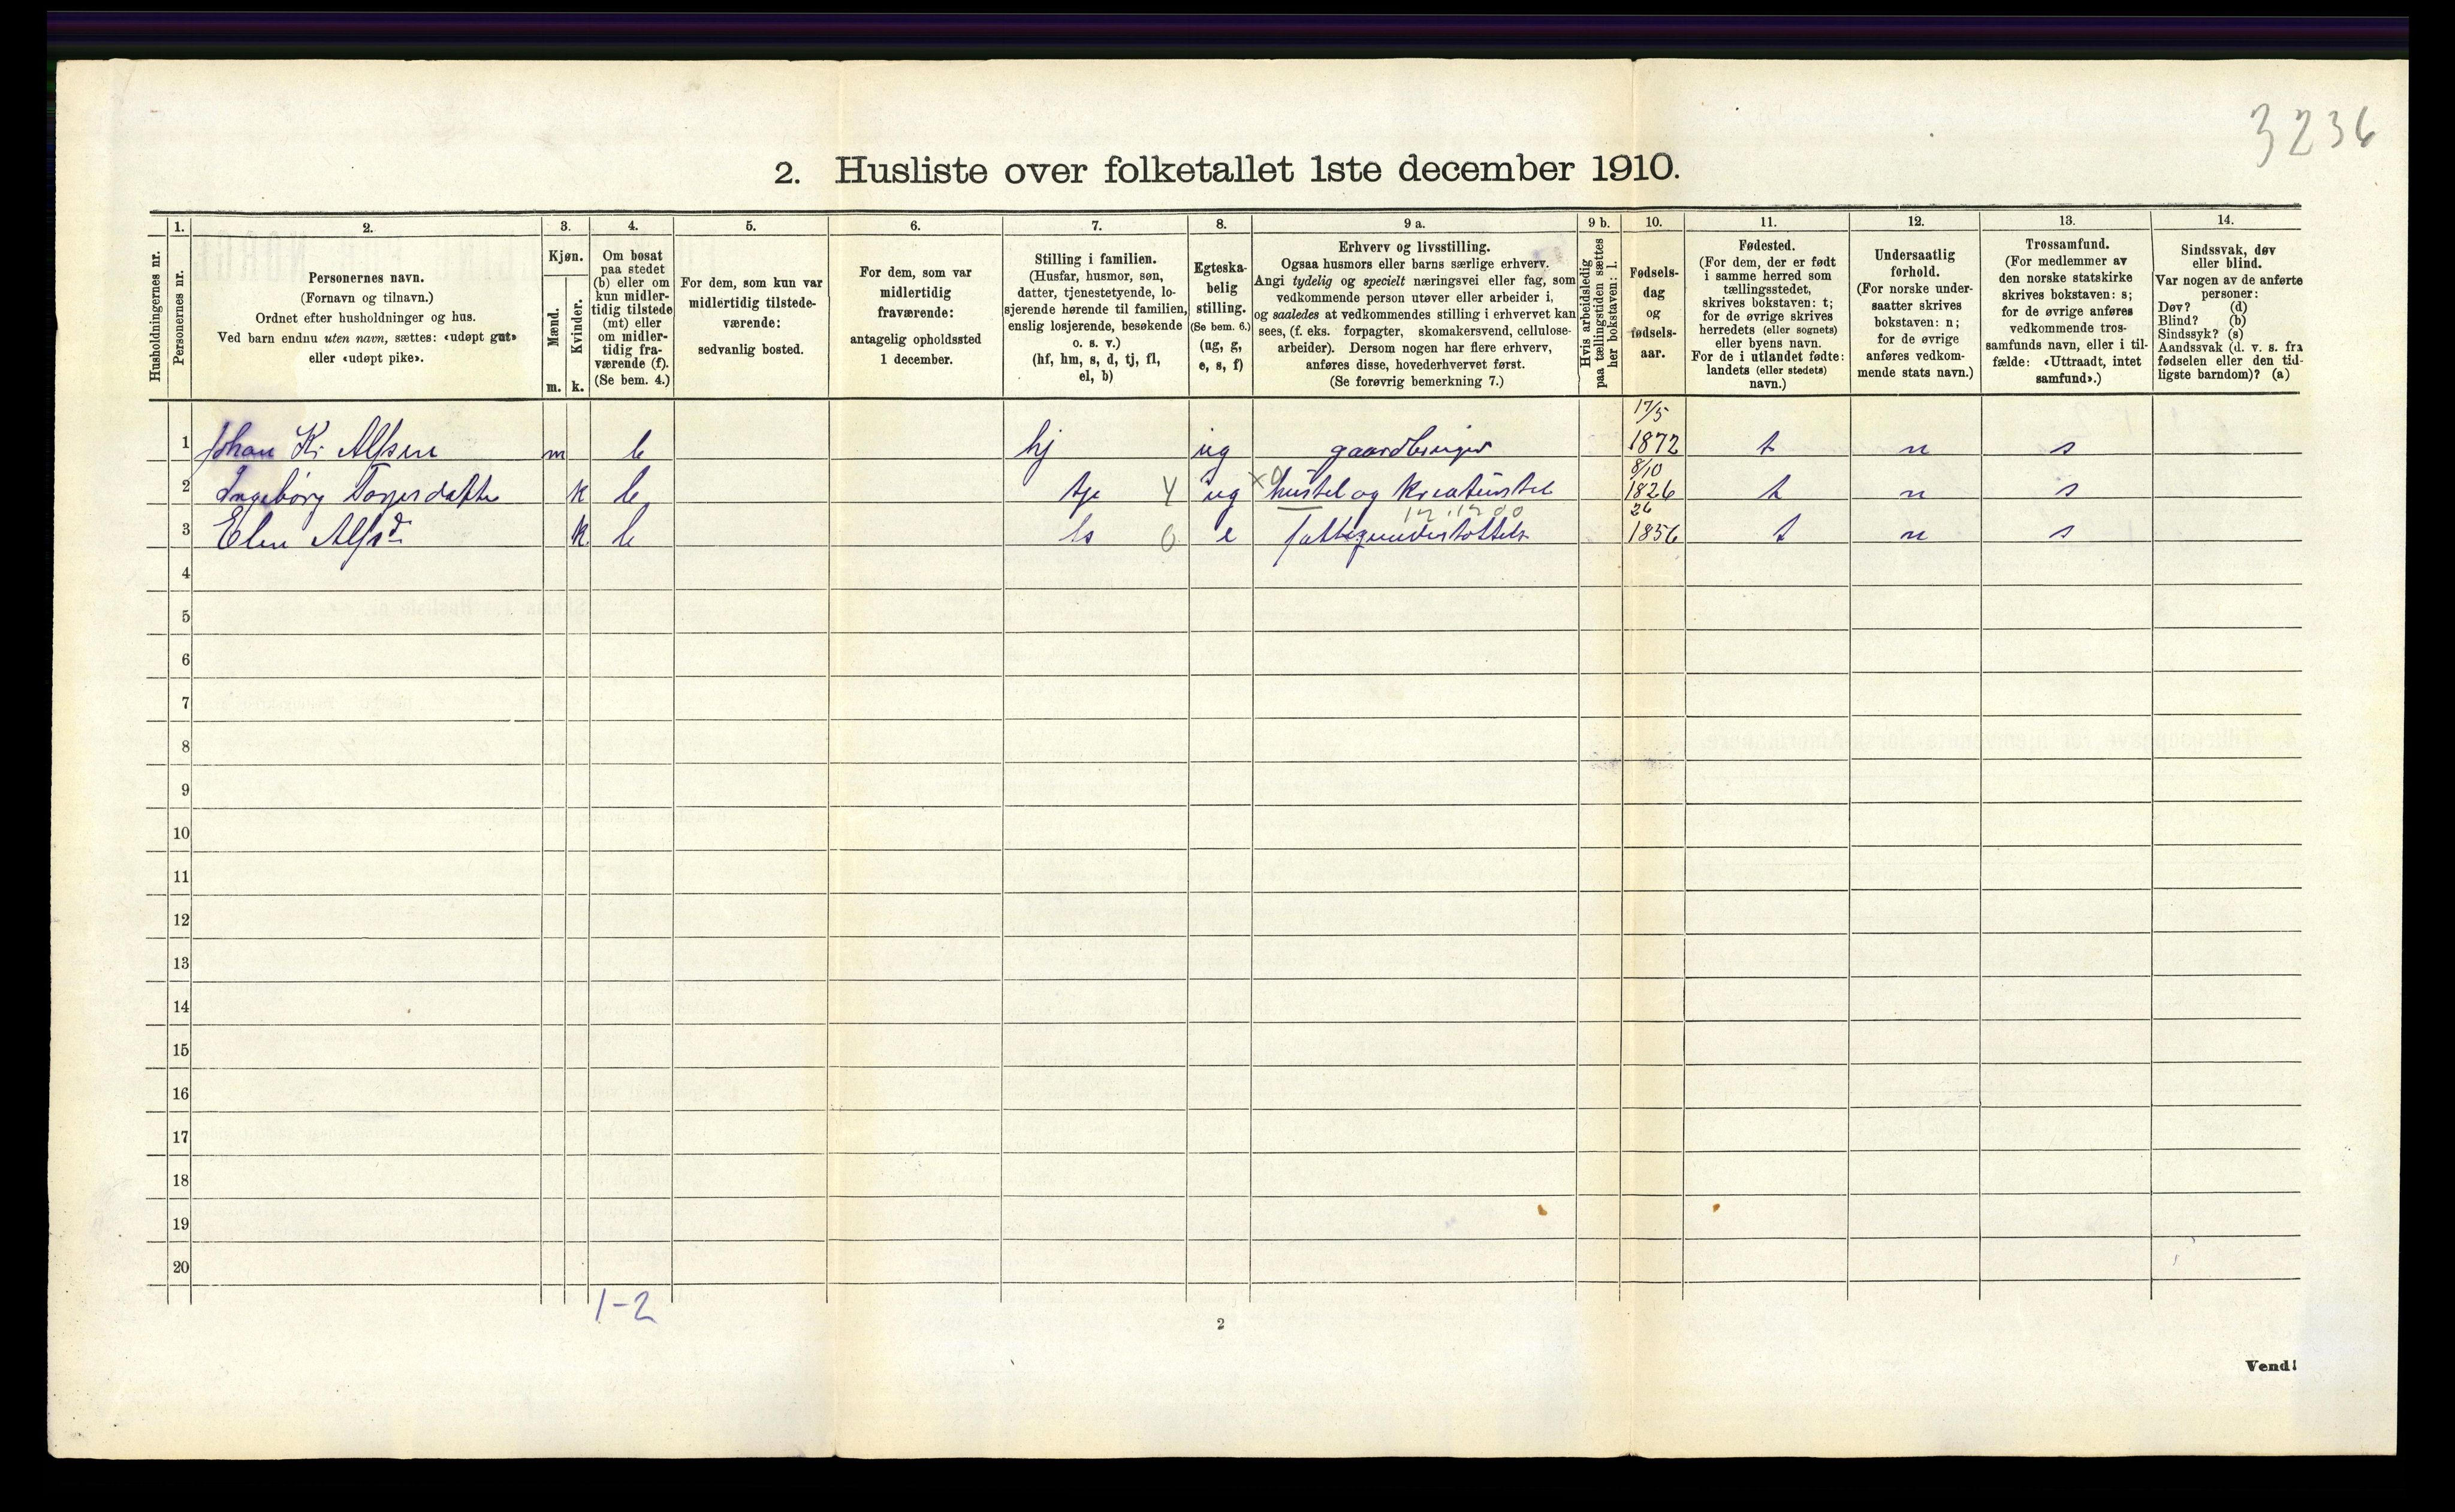 3236
2. Husliste over folketallet 1ste december 1910.
Husholdningernes nr.
1.
Personernes nr.
2.
Personernes navn.
(Fornavn og tilnavn.)
Ordnet efter husholdninger og hus.
Ved barn endnu uten navn, sættes: «udøpt gut»
eller «udøpt pike».
3.
Kjøn.
Mænd.
Kvinder.
m. k.
4.
Om bosat
paa stedet
(b) eller om
kun midler-
tidig tilstede
(mt) eller
om midler-
tidig fra-
værende (f).
(Se bem. 4.)
5.
For dem, som kun var
midlertidig tilstede-
værende:
sedvanlig bosted.
6.
For dem, som var
midlertidig
fraværende:
antagelig opholdssted
1 december.
7.
Stilling i familien.
(Husfar, husmor, søn,
datter, tjenestetyende, lo-
sjerende hørende til familien,
enslig losjerende, besøkende
o. s. v.)
(hf, hm, s, d, tj, fl,
el, b)
8.
Egteska-
belig
stilling.
(Se bem. 6.)
(ug, g,
e, s, f)
9 a.
Erhverv og livsstilling.
Ogsaa husmors eller barns særlige erhverv.
Angi tydelig og specielt næringsvei eller fag, som
vedkommende person utøver eller arbeider i,
og saaledes at vedkommendes stilling i erhvervet kan
sees, (f. eks. forpagter, skomakersvend, cellulose-
arbeider). Dersom nogen har flere erhverv,
anføres disse, hovederhvervet først.
(Se forøvrig bemerkning 7.)
9 b.
Hvis arbeidsledig
paa tællingstiden sættes
her bokstaven: l.
10.
Fødsels-
dag
og
fødsels-
aar.
11.
Fødested.
(For dem, der er født
i samme herred som
tællingsstedet,
skrives bokstaven: t;
for de øvrige skrives
herredets (eller sognets)
eller byens navn.
For de i utlandet fødte:
landets (eller stedets)
navn.)
12.
Undersaatlig
forhold.
(For norske under-
saatter skrives
bokstaven: n;
for de øvrige
anføres vedkom-
mende stats navn.)
13.
Trossamfund.
(For medlemmer av
den norske statskirke
skrives bokstaven: s;
for de øvrige anføres
vedkommende tros-
samfunds navn, eller i til-
fælde: «Uttraadt, intet
samfund».)
14.
Sindssvak, døv
eller blind.
Var nogen av de anførte
personer:
Døv? (d)
Blind? (b)
Sindssyk? (s)
Aandssvak (d. v. s. fra
fødselen eller den tid-
ligste barndom)? (a)
17/5
1 Johan K. Alfsen m b hf ug gaardbruger 1872 t n s
8/10
2 Ingebörg k b tje ug hustel og kreaturstel 1826 t n s
26
3 Elen Alfsd k b e fattigunderstøttels 1856 t n s
4
5
6
7
8
9
10
11
12
13
14
15
16
17
18
19
20
1-2
2
Vend!